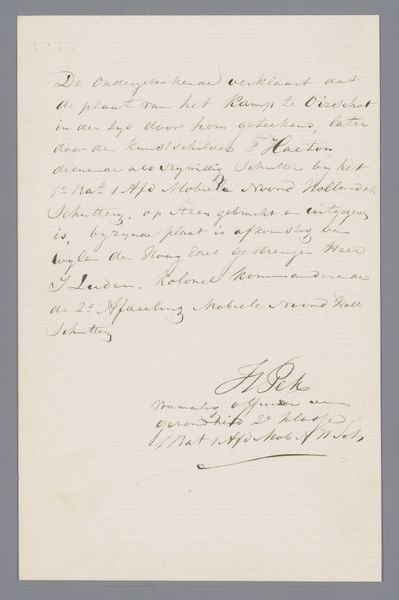 De ondergeteekende verklaart dat
de plaat van het Kamp te Oirschot
in der tyd door hem geteekend, later
door de Kunstschilder F Haeton
dienende als vrywillig Schutter by het
1e Bat. 1 Afd Mobiele Noord Hollandsch
Schuttery, op Steen gebracht en uitgegeven
is, byzynde plaat is afkomstig van
wylen den Hoog Edel gestrengen Heer
J Luden, Kolonel Kommanderende
de 2e Afdeeling Mobiele Noord Holl
Schuttery
H Pek
Voormalig officier van
gezondheid 2e klasse
1 Bat 1 Afd Mob N H Sch,